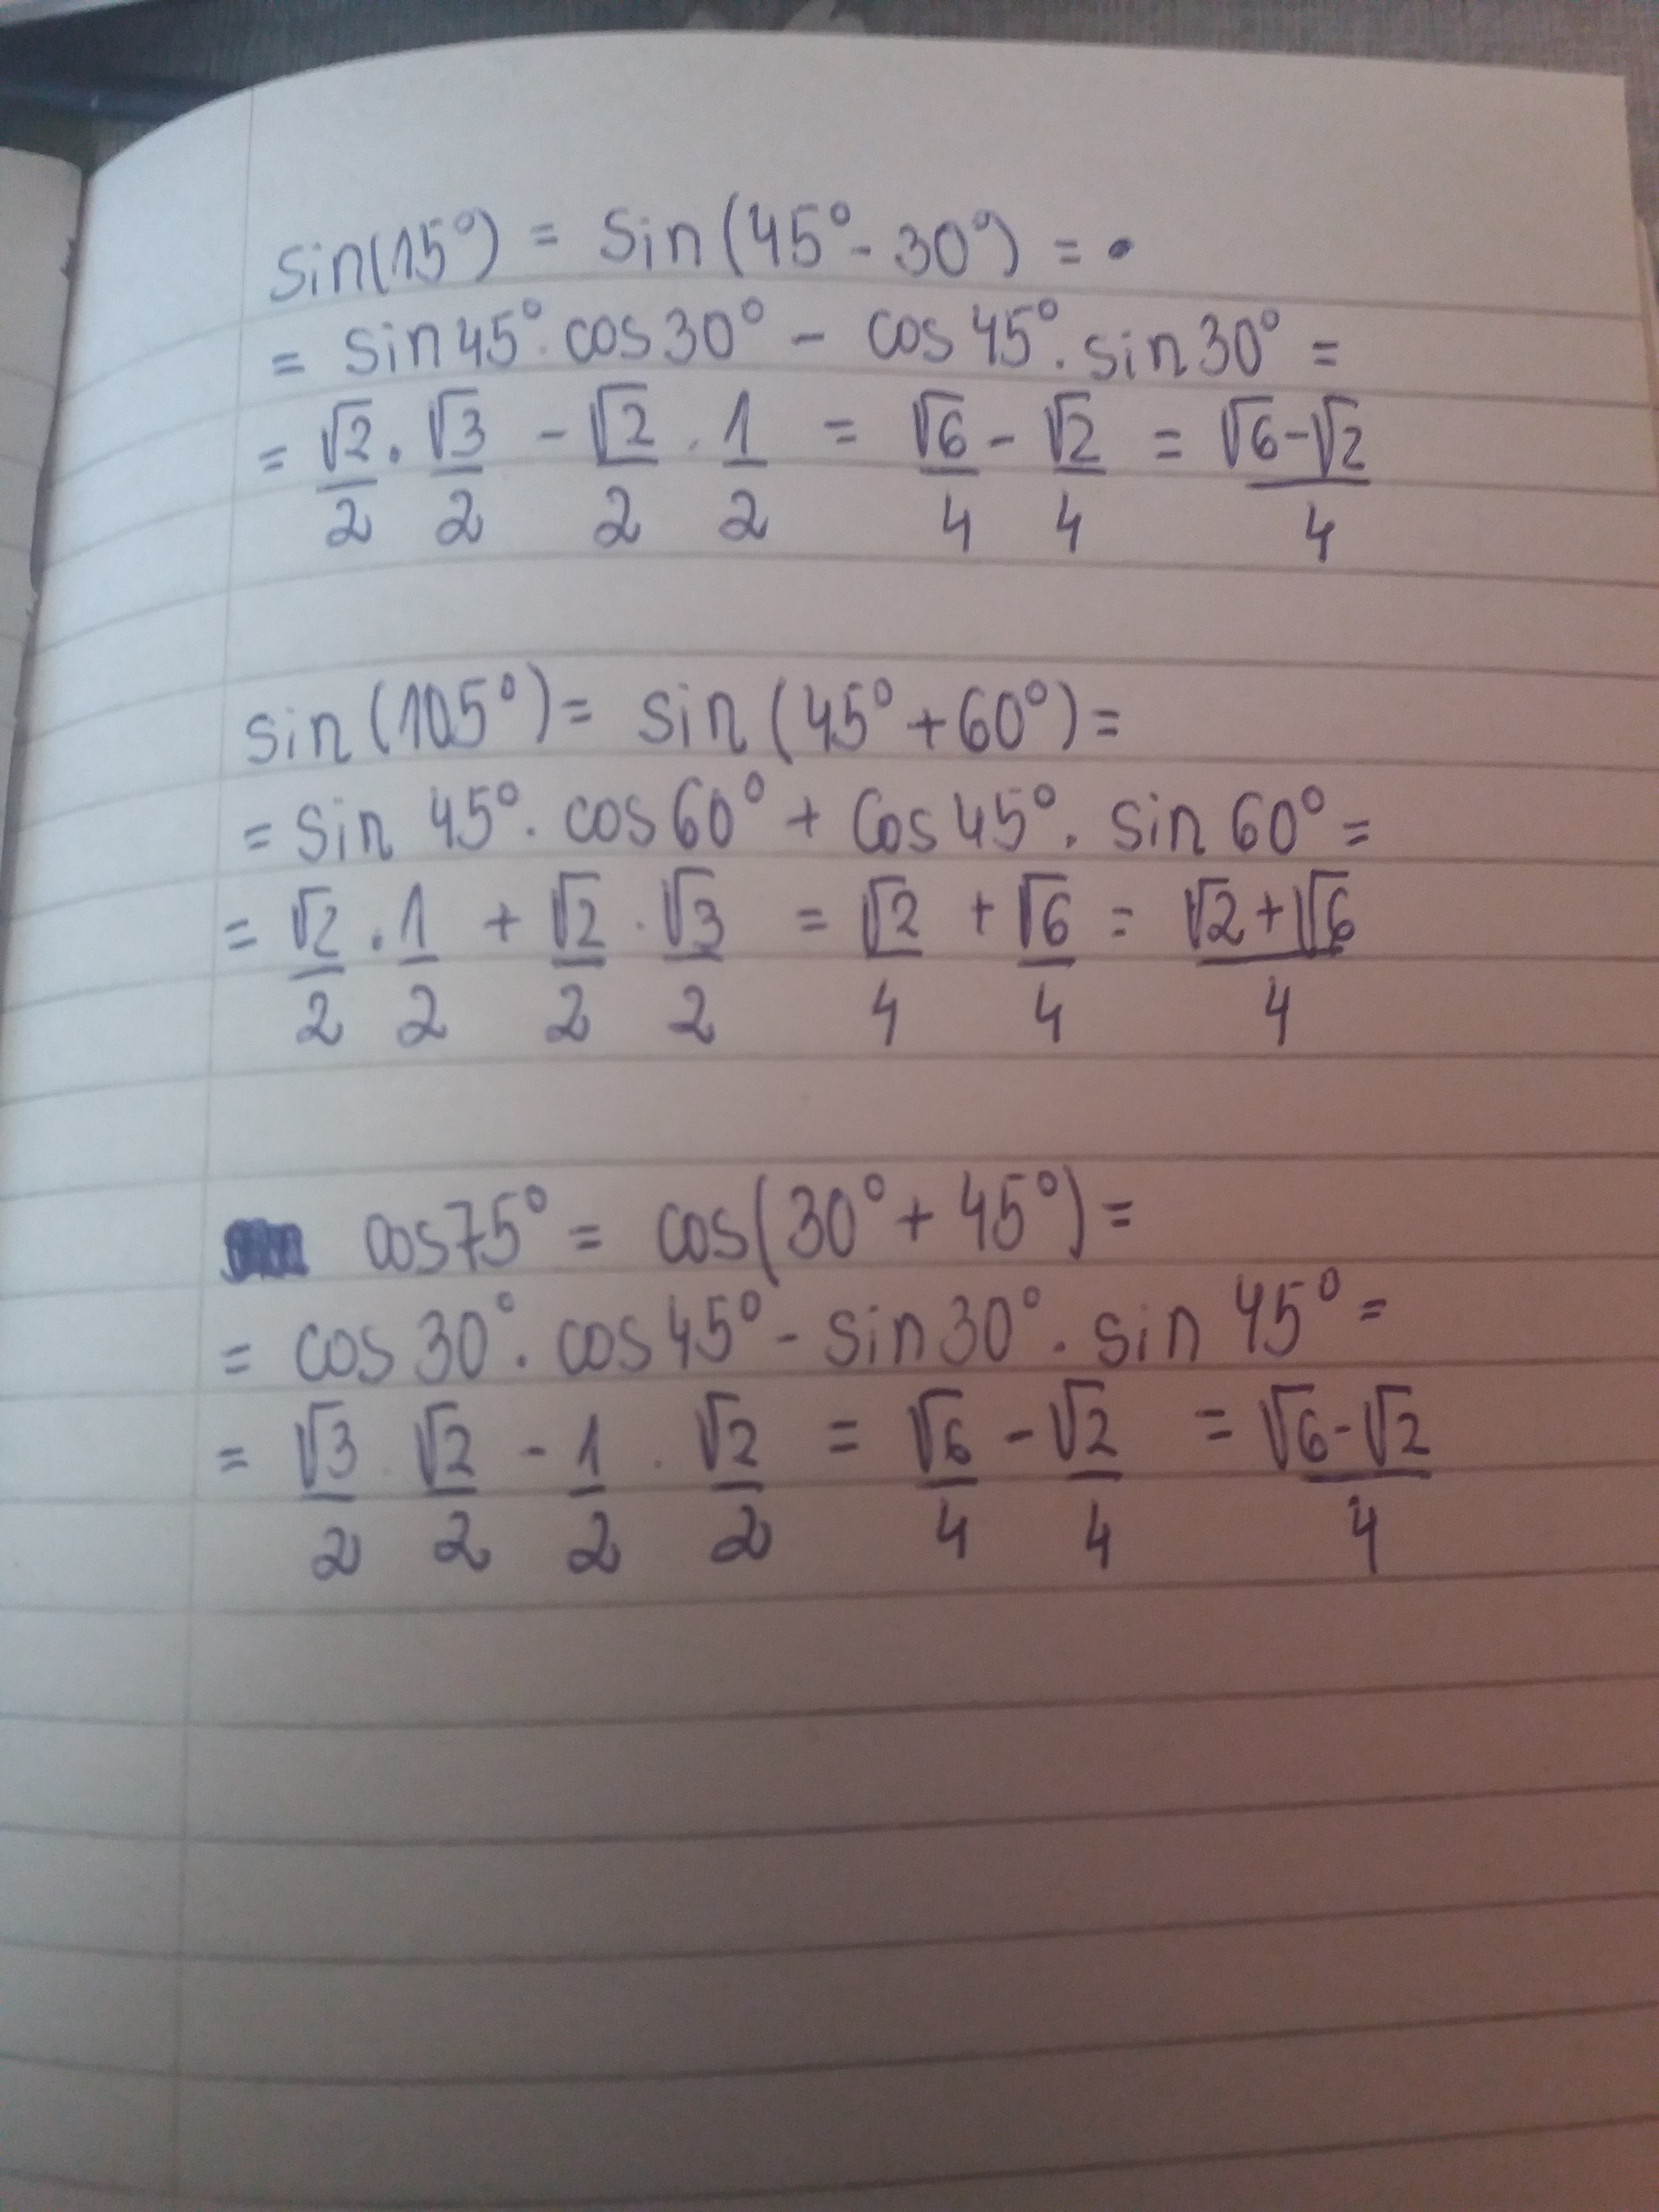 sin(15°) = sin(45°-30°) = •
= sin45°·cos30° - cos45°·sin30° =
= √2/2 · √3/2 - √2/2 · 1/2 = √6/4 - √2/4 = (√6-√2)/4
sin(105°) = sin(45°+60°) =
= sin 45°·cos60° + cos45°·sin60° =
= √2/2 · 1/2 + √2/2 · √3/2 = √2/4 + √6/4 = (√2+√6)/4
cos75° = cos(30°+45°) =
= cos30°·cos45° - sin30°·sin 45° =
= √3/2 · √2/2 - 1/2 · √2/2 = √6/4 - √2/4 = (√6-√2)/4